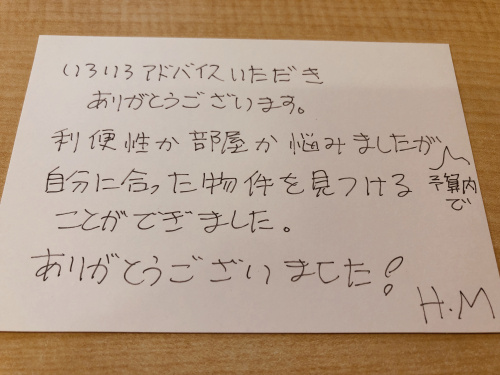 いろいろアドバイスいただき
ありがとうございます。
利便性か部屋か悩みましたが
予算内
で
自分に合った物件を見つける
ことができました。
ありがとうございました!
H.M